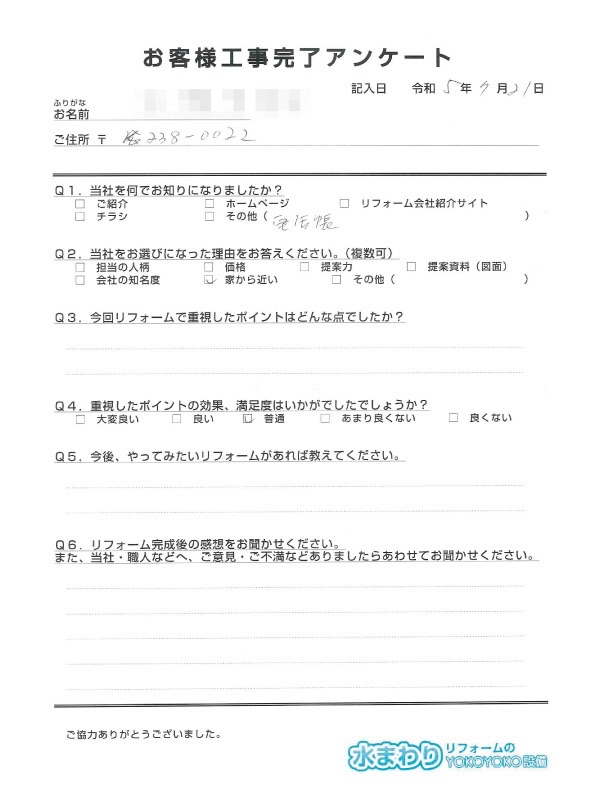 お客様工事完了アンケート
記入日 令和 5 年 7 月 21 日
ふりがな
お名前
ご住所 〒 238-0022
Q1．当社を何でお知りになりましたか？
□ ご紹介 □ ホームページ □ リフォーム会社紹介サイト
□ チラシ □ その他（ 電話帳 ）
Q2．当社をお選びになった理由をお答えください。（複数可）
□ 担当の人柄 □ 価格 □ 提案力 □ 提案資料（図面）
□ 会社の知名度 ☑ 家から近い □ その他（ ）
Q3．今回リフォームで重視したポイントはどんな点でしたか？
Q4．重視したポイントの効果、満足度はいかがでしたでしょうか？
□ 大変良い □ 良い ☑ 普通 □ あまり良くない □ 良くない
Q5．今後、やってみたいリフォームがあれば教えてください。
Q6．リフォーム完成後の感想をお聞かせください。
また、当社・職人などへ、ご意見・ご不満などありましたらあわせてお聞かせください。
ご協力ありがとうございました。
水まわりリフォームのYOKOYOKO設備